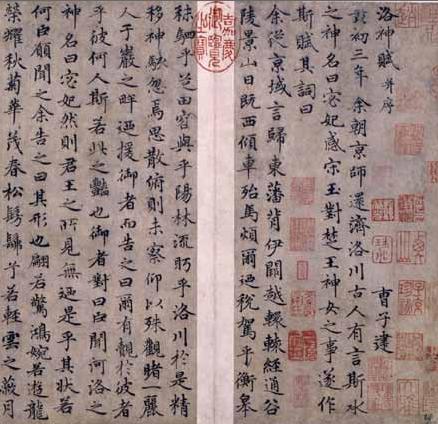 洛神賦 并序
曹子建
黃初三年余朝京師還濟洛川古人有言斯水
之神名曰宓妃感宋玉對楚王神女之事遂作
斯賦其詞曰
余從京域言歸東藩背伊闕越轘轅經通谷
陵景山日既西傾車殆馬煩爾迺稅駕乎衡皋
秣駟乎芝田容與乎陽林流眄乎洛川於是精
移神駭忽焉思散俯則未察仰以殊觀睹一麗
人于巖之畔迺援御者而告之曰爾有覿於彼者
乎彼何人斯若此之豔也御者對曰臣聞河洛之
神名曰宓妃然則君王之所見無迺是乎其狀若
何臣願聞之余告之曰其形也翩若驚鴻婉若遊龍
榮耀秋菊華茂春松髣髴乎若輕雲之蔽月
嘉慶御覽之寶